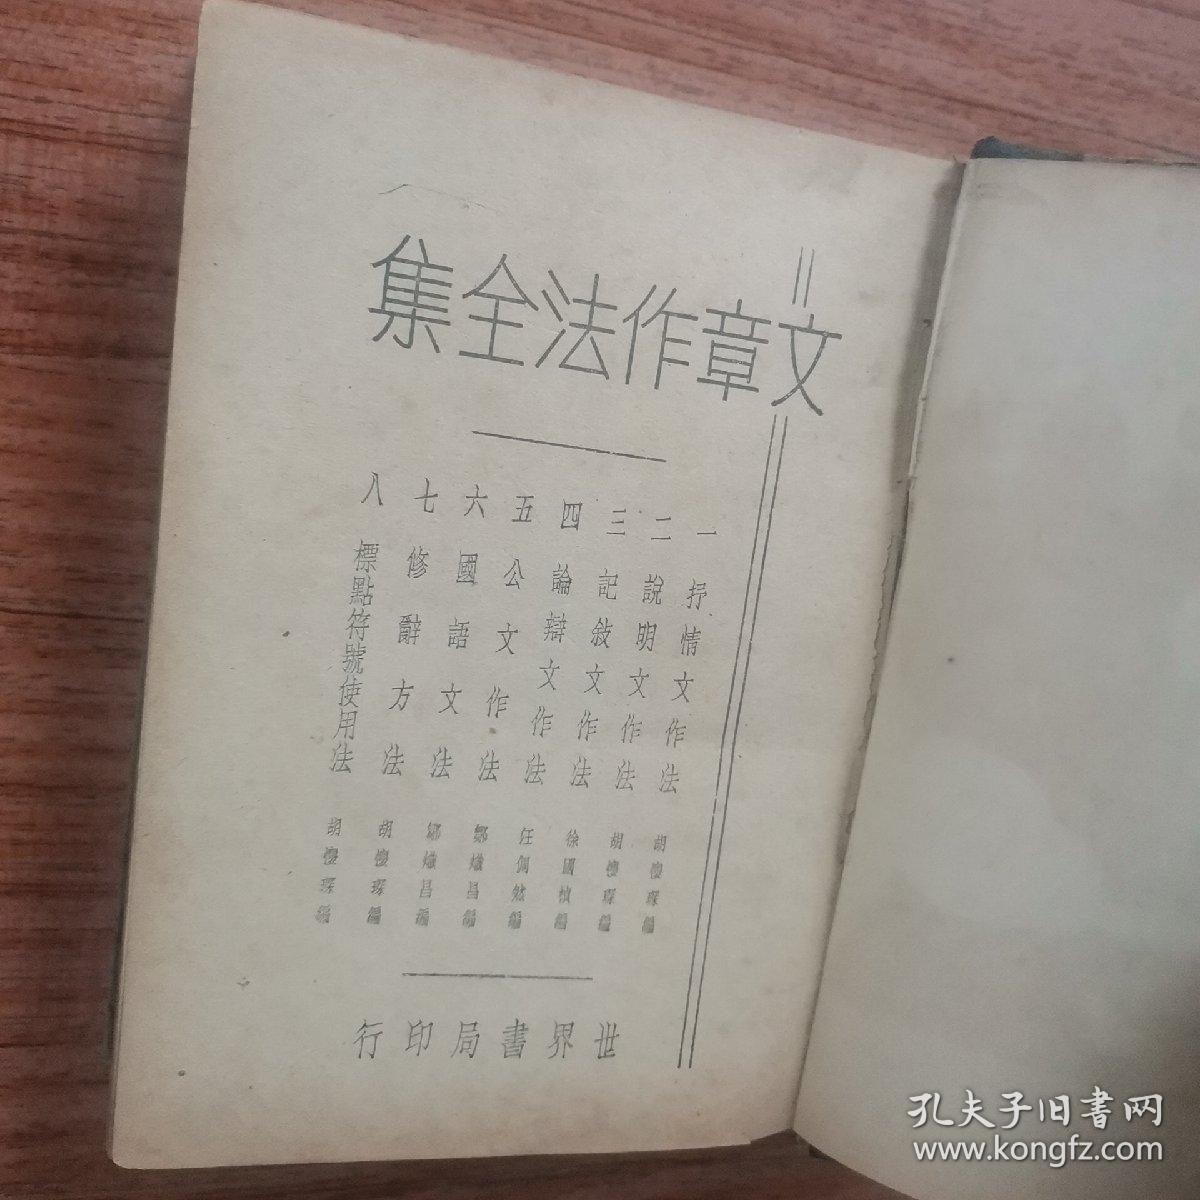 文章作法全集
一 抒情文作法 胡懷琛編
二 說明文作法 胡懷琛編
三 記敍文作法 徐國楨編
四 論辯文作法 汪倜然編
五 公文作法 鄒熾昌編
六 國語文法 鄒熾昌編
七 修辭方法 胡懷琛編
八 標點符號使用法 胡懷琛編
世界書局印行
孔夫子旧書网
www.kongfz.com